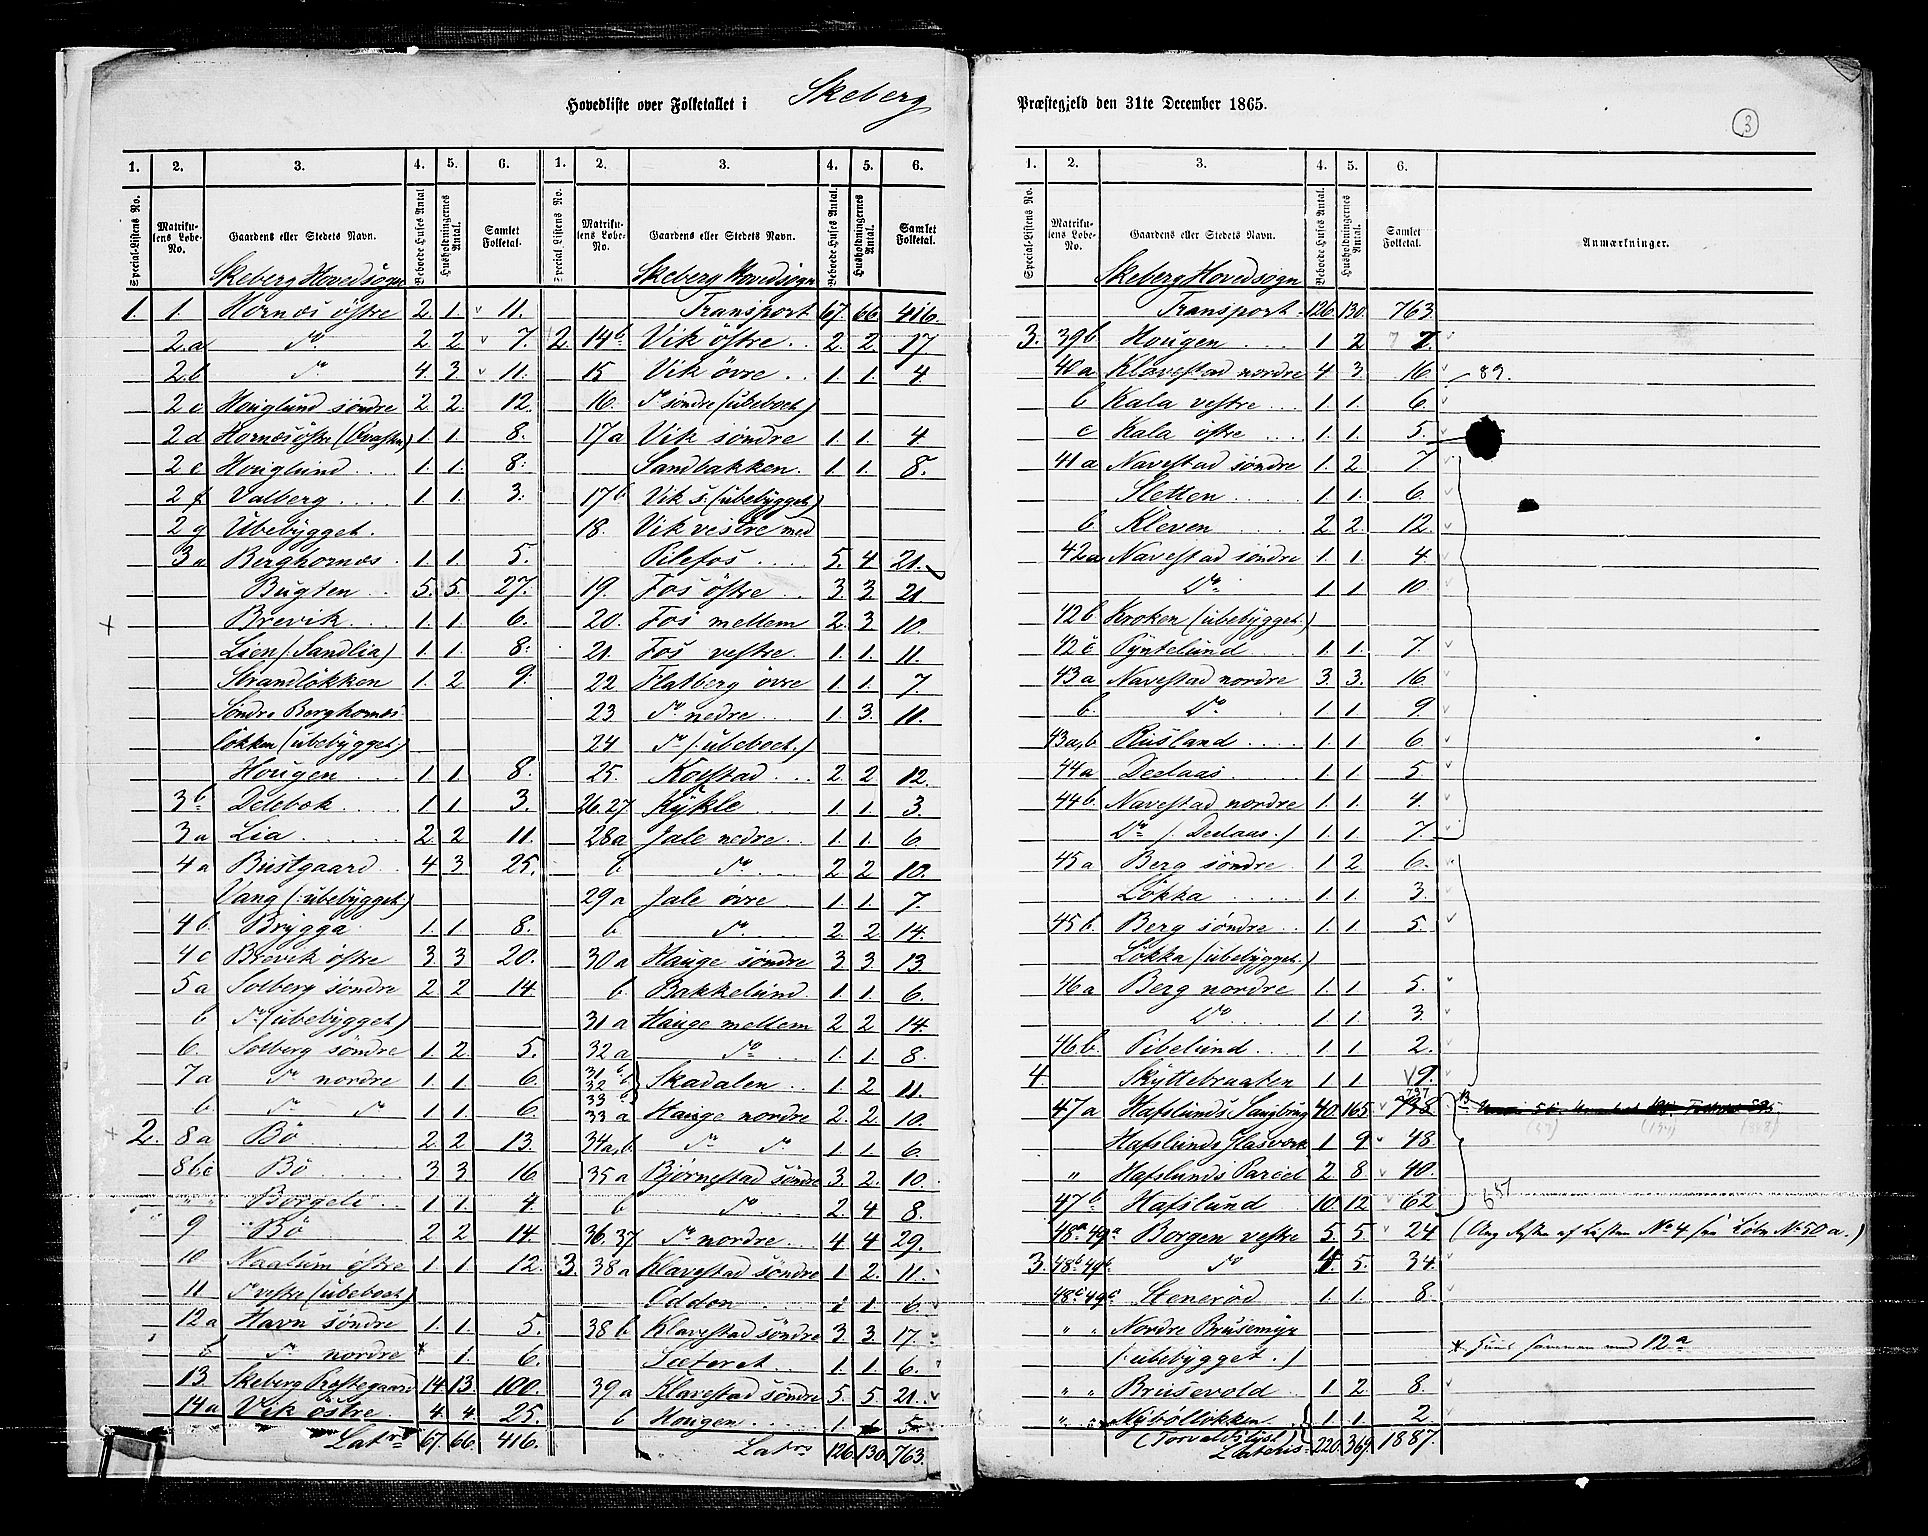 Hovedliste over Folketallet i Skeberg
Præstegjeld den 31te December 1865.
3
1. 2. 3. 4. 5. 6. 1. 2. 3. 4. 5. 6.
Special-Listens No. Matrikulens Lobe-No. Gaardens eller Stedets Navn. Beboede Huses Antal Husholdningernes Antal. Samlet Folketal. Special-Listens No. Matrikulens Lobe-No. Gaardens eller Stedets Navn. Beboede Huses Antal. Husholdningernes Antal. Samlet Folketal.
Skeberg Hovedsogn
1. 1 Hornæs östre 2. 1. 11.
2.a Do 2. 2 7.
2.b Do 4. 3 11.
2 c Houglund søndre 2. 2. 12.
2 d Hornæs östre 1. 1. 8.
2 e Houglund 1. 1. 8.
2 f Valberg 1. 1. 3.
2 g Ubebygget.
3 a Berghornæs 1. 1. 5.
Bugten 5. 5. 27.
Brevik 1. 1. 6.
Lien (Sandlia) 1. 1. 8.
Strandløkken 1. 2 9.
Søndre Berghornæs
løkken (ubebygget)
Hougen 1 1 8.
3 b Delebæk 1 1 3.
3 a Lia 2 2 11.
4 a Bustgaard 4 3 25.
Vang (:ubebygget:)
4 b. Brygga 1. 1 8.
4 c Brevik östre 3. 3 20.
5 a Solberg søndre 2. 2 14
b Do (ubebygget)
6. Solberg søndre 1. 2. 5.
7 a Do nordre 1 1 6.
b Do Do 1 1. 6.
2. 8 a Bö 2. 2 13.
8 b c Bö 3 3 16.
" " Borgeli 1 1 4.
9 Bö 2 2 14
10 Naalum östre 1 1 12.
11 Do vestre (ubeboet)
12 a Havn søndre 1. 1. 5.
b Do nordre * 1. 6.
13. Skeberg Præstegaard 14 13. 100.
14 a Vik östre 4. 4. 25.
Latrs 67. 66. 416.
Skeberg Hovedsogn
Transport 67. 66 416.
2 14 b. Vik östre 2. 2. 17
15 Vik övre 1. 1. 4.
16. Do søndre (ubeboet)
17 a Vik søndre 1. 1. 4
Sandbakken. 1. 1. 8.
17 b Vik s. (ubebygget)
18. Vik vestre med
Pilefos 5. 4 21.
19. Fos östre 3. 3. 21
20. Fos mellem 2. 3 10.
21. Fos vestre 1. 1. 11.
22 Flatberg övre 1 1. 7.
23 Do nedre 1 3. 11.
24 Do (ubeboet.)
25. Kolstad 2. 2 12.
26.27 Kykle 1. 1. 3.
28 a Jale nedre 1. 1 6
b Do 2 2 10.
29 a Jale övre 1. 1. 7.
b Do 2. 2 14.
30 a Hauge søndre 3. 3. 13.
b. Bakkelund. 1. 1. 6.
31 a Hauge mellem 2 2 14
32 a Do 1. 1. 8.
31 b 32 b 33 b Skadalen 1. 2 11.
33 a Hauge nordre 2. 2. 10.
34 a,b Do Do 1 1 6.
35 a Bjørnestad söndre 3. 2. 10.
b Do 2 4 8.
36.37 Do nordre 4 4 29.
3. 38 a Klavestad söndre 1 2. 11.
Oddon 1 1. 6.
38 b Klavestad söndre 3 3. 17.
Sæteret 1. 1 6.
39 a Klavestad söndre 5. 5 21.
b Hougen 1. 5
Latrs 126. 130. 763.
1. 2. 3. 4. 5. 6.
Special-Listens No. Matrikulens Lobe-No. Gaardens eller Stedets Navn. Beboede Huses Antal. Husholdningernes Antal. Samlet Folketal. Anmærkninger.
Skeberg Hovedsogn
Transport 126. 130. 763.
3. 39 b Hougen 1 2 7.
40 a Klavestad nordre 4 3. 16 89.
b Kala vestre 1. 1. 6.
c Kala östre 1. 1. 5.
41 a Navestad söndre 1. 2 7
Sletten 1 1. 6.
b Kleven 2 2 12.
42 a Navestad söndre 1. 1 4.
Do 1 1 10.
42 b Kroken (ubebygget.)
42 c Pyntelund 1. 1 7.
43 a Navestad nordre 3. 3. 16
b. Do 1 1 9.
43 a,b Rusland 1. 1 6
44 a Deelaas 1. 1. 5
44 b. Navestad nordre 1. 1 4.
Do (: Deelaas.) 1. 1 7.
45 a Berg söndre 1 2 6.
Løkka 1. 1 3.
45 b. Berg søndre 1. 1 5.
Løkka (ubebygget.)
46 a Berg nordre 1. 1 5.
Do 1 1. 3.
46 b. Pibelund 1. 1 2.
4. Skyttebraaten 1. 1 9.
47 a Hafslunds Saugbrug 40. 165 737
Hafslunds Glasværk 1 9 48
" Hafslunds Parcel 2 8 40.
47 b Hafslund 10. 12 62
48 a 49 a Borgen vestre 5. 5 24
3. 48 b 49 b. Do 4. 5. 34.
48 c 49 c Stenerød 1. 1. 8.
" " Nordre Brusemyr
(:ubebygget.)
* Huus sammen med 12 a
" " Brusevold 1. 2 8.
" " Nybölløkken 1. 1. 2.
(Torvaldslyst)
Lateris 220. 369. 1887.